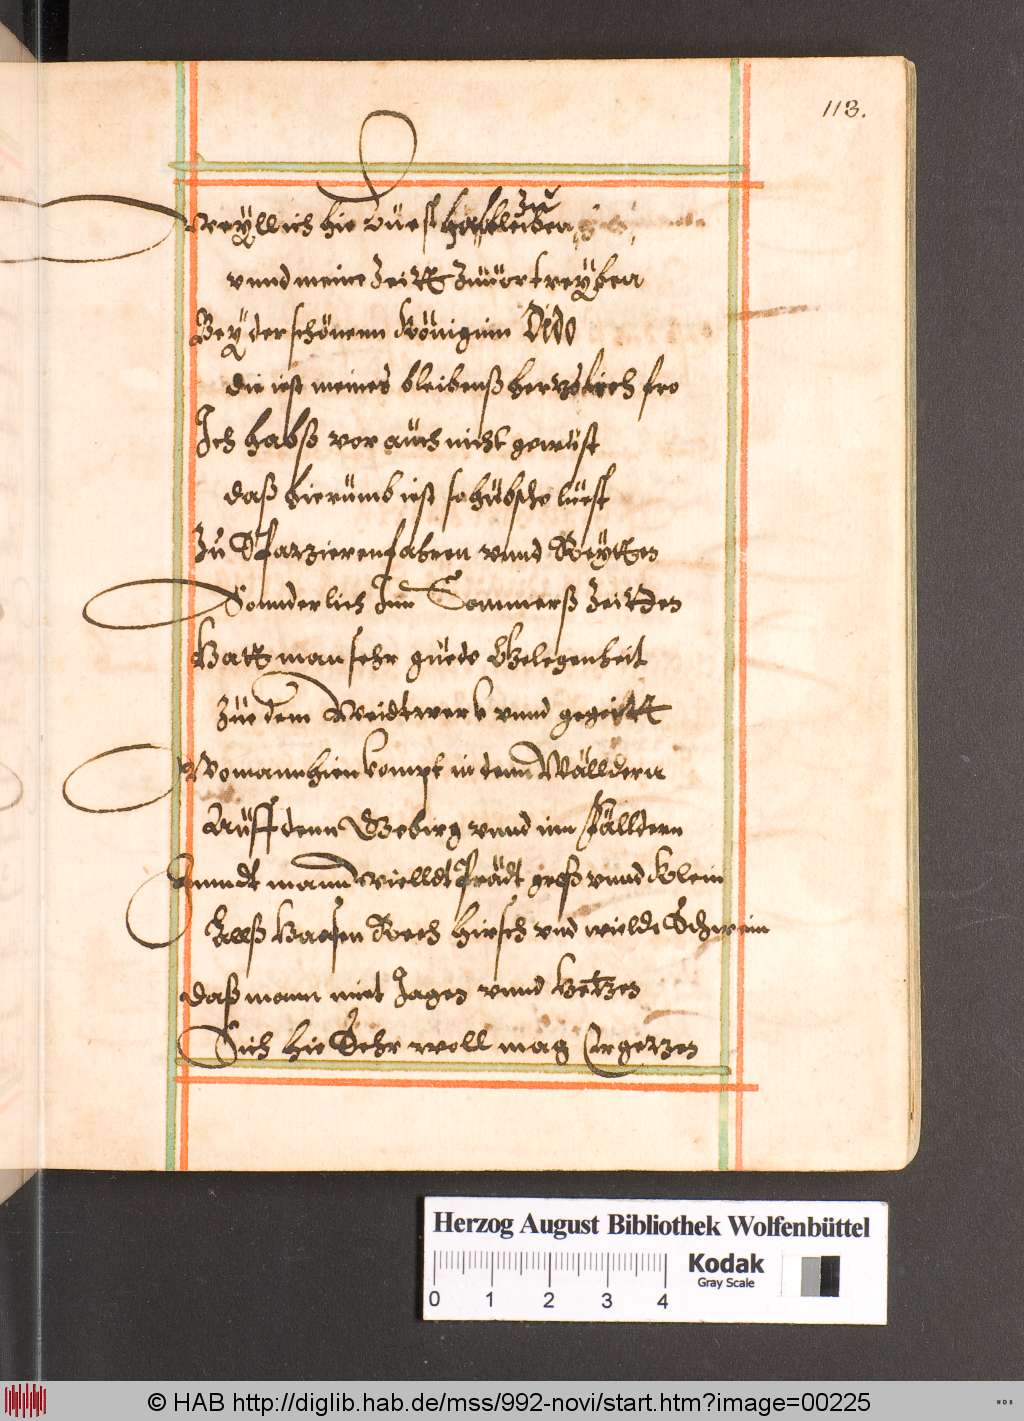 113.
weÿll ich hie lüest hab zu bleiben
vnnd meine Zeitt Zuuortreÿben
Beÿ der schönenn Königinn Dido
die ist meines bleibenß hertzlich fro
Ich habß vor auch nicht gewüst
daß hierümb ist so hübsche lüest
Zu Spatzieren fahren vnnd Reÿtten
Sonnderlich Inn Sommerß Zeitten
Hatt man sehr güete Gelegenheit
Züe dem Weidtwerk vnnd gegeitt
Wo mann hien kompt in denn Wälldern
Auff denn Gebirg vnnd inn Fälldern
finndt mann vielldt groß vnnd Klein
Allß Hasen Rech Hirsch vnd wielde Schwein
daß mann miet Jagen vnnd Hetzen
Sich hie Sehr woll mag ergetzen
Herzog August Bibliothek Wolfenbüttel
Kodak
Gray Scale
0 1 2 3 4
© HAB http://diglib.hab.de/mss/992-novi/start.htm?image=00225